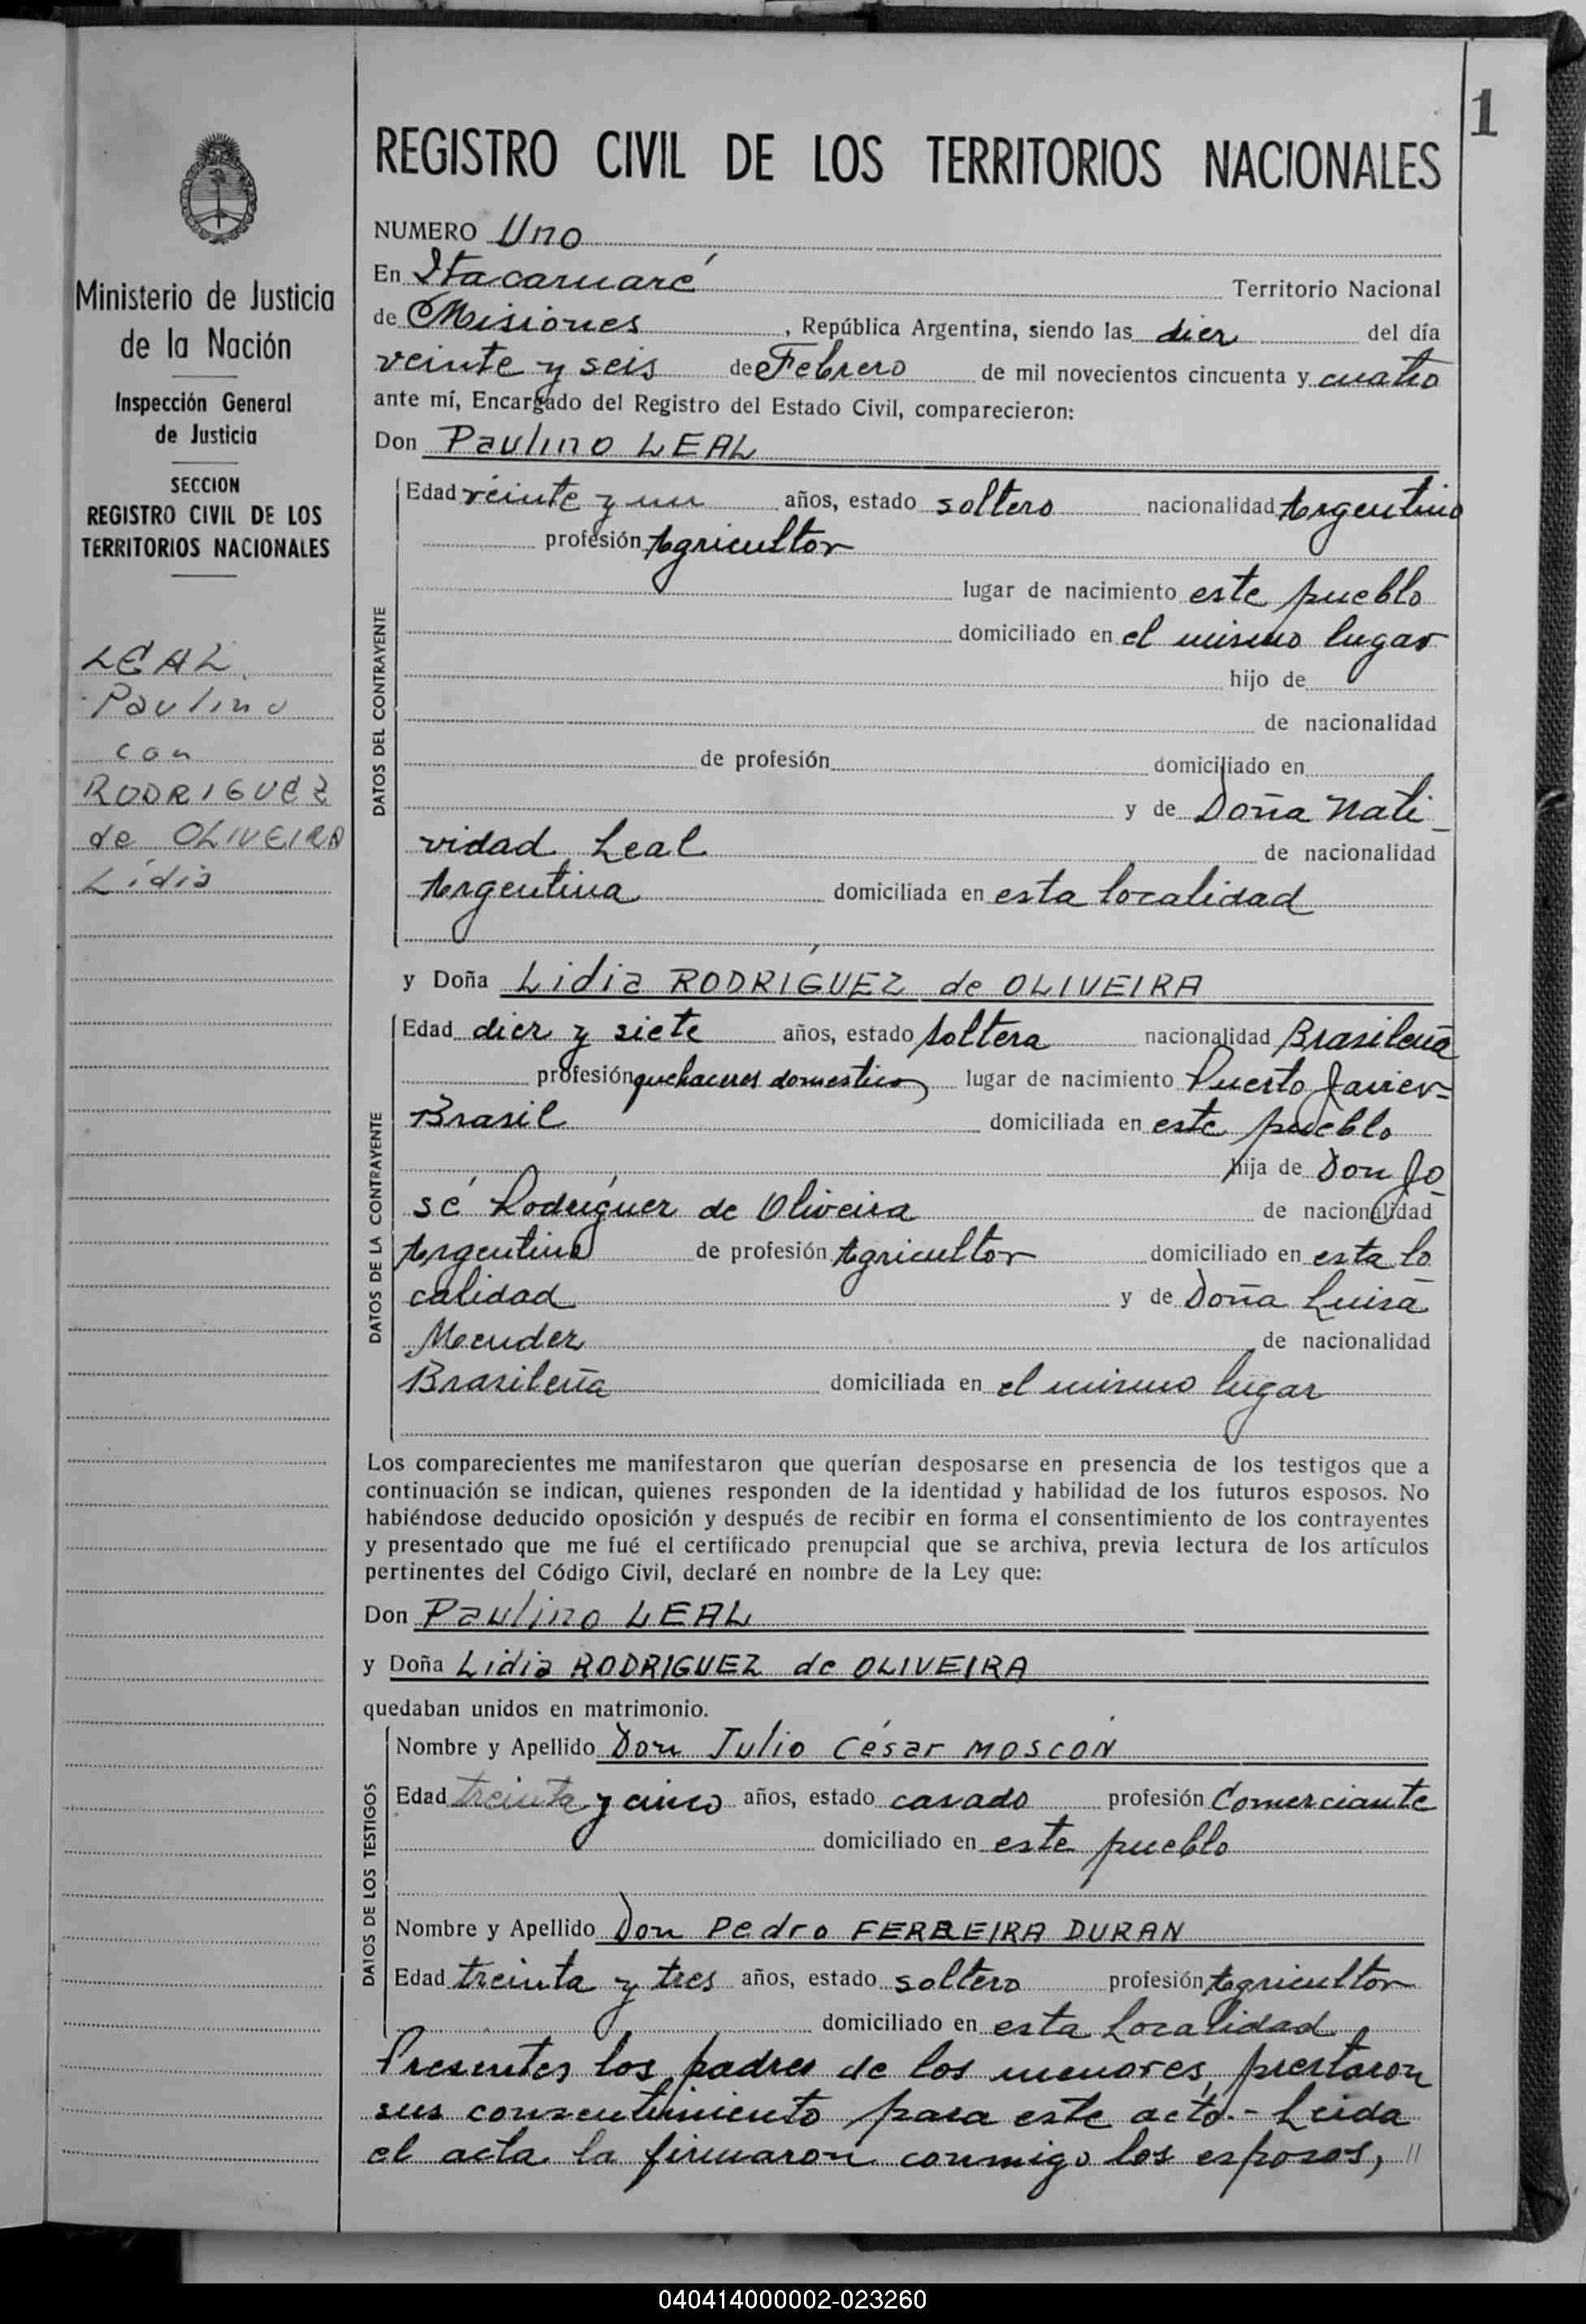 1
REGISTRO CIVIL DE LOS TERRITORIOS NACIONALES
Ministerio de Justicia
de la Nación
Inspección General
de Justicia
SECCION
REGISTRO CIVIL DE LOS
TERRITORIOS NACIONALES
LEAL
Paulino
con
RODRIGUEZ
de OLIVEIRA
Lidia
NUMERO Uno
En Itacaruaré Territorio Nacional
de Misiones, República Argentina, siendo las diez del día
veinte y seis de Febrero de mil novecientos cincuenta y cuatro
ante mí, Encargado del Registro del Estado Civil, comparecieron:
Don Paulino LEAL
DATOS DEL CONTRAYENTE
Edad veinte y un años, estado soltero nacionalidad Argentino
profesión Agricultor
lugar de nacimiento este pueblo
domiciliado en el mismo lugar
hijo de
de nacionalidad
de profesión domiciliado en
y de Doña Nati-
vidad Leal de nacionalidad
Argentina domiciliada en esta localidad
y Doña Lidia RODRÍGUEZ de OLIVEIRA
DATOS DE LA CONTRAYENTE
Edad diez y siete años, estado soltera nacionalidad Brasileña
profesión quehaceres domesticos lugar de nacimiento Puerto Javier-
Brasil domiciliada en este pueblo
hija de Don Jo-
sé Rodríguez de Oliveira de nacionalidad
Argentina de profesión Agricultor domiciliado en esta lo-
calidad y de Doña Luisa
Mendez de nacionalidad
Brasileña domiciliada en el mismo lugar
Los comparecientes me manifestaron que querían desposarse en presencia de los testigos que a
continuación se indican, quienes responden de la identidad y habilidad de los futuros esposos. No
habiéndose deducido oposición y después de recibir en forma el consentimiento de los contrayentes
y presentado que me fué el certificado prenupcial que se archiva, previa lectura de los artículos
pertinentes del Código Civil, declaré en nombre de la Ley que:
Don Paulino LEAL
y Doña Lidia RODRIGUEZ de OLIVEIRA
quedaban unidos en matrimonio.
DATOS DE LOS TESTIGOS
Nombre y Apellido Don Julio César MOSCON
Edad treinta y cinco años, estado casado profesión Comerciante
domiciliado en este pueblo
Nombre y Apellido Don Pedro FERREIRA DURAN
Edad treinta y tres años, estado soltero profesión Agricultor
domiciliado en esta localidad
Presentes los padres de los menores, prestaron
sus consentimiento para este acto.- Leida
el acta la firmaron conmigo los esposos, //
040414000002-023260